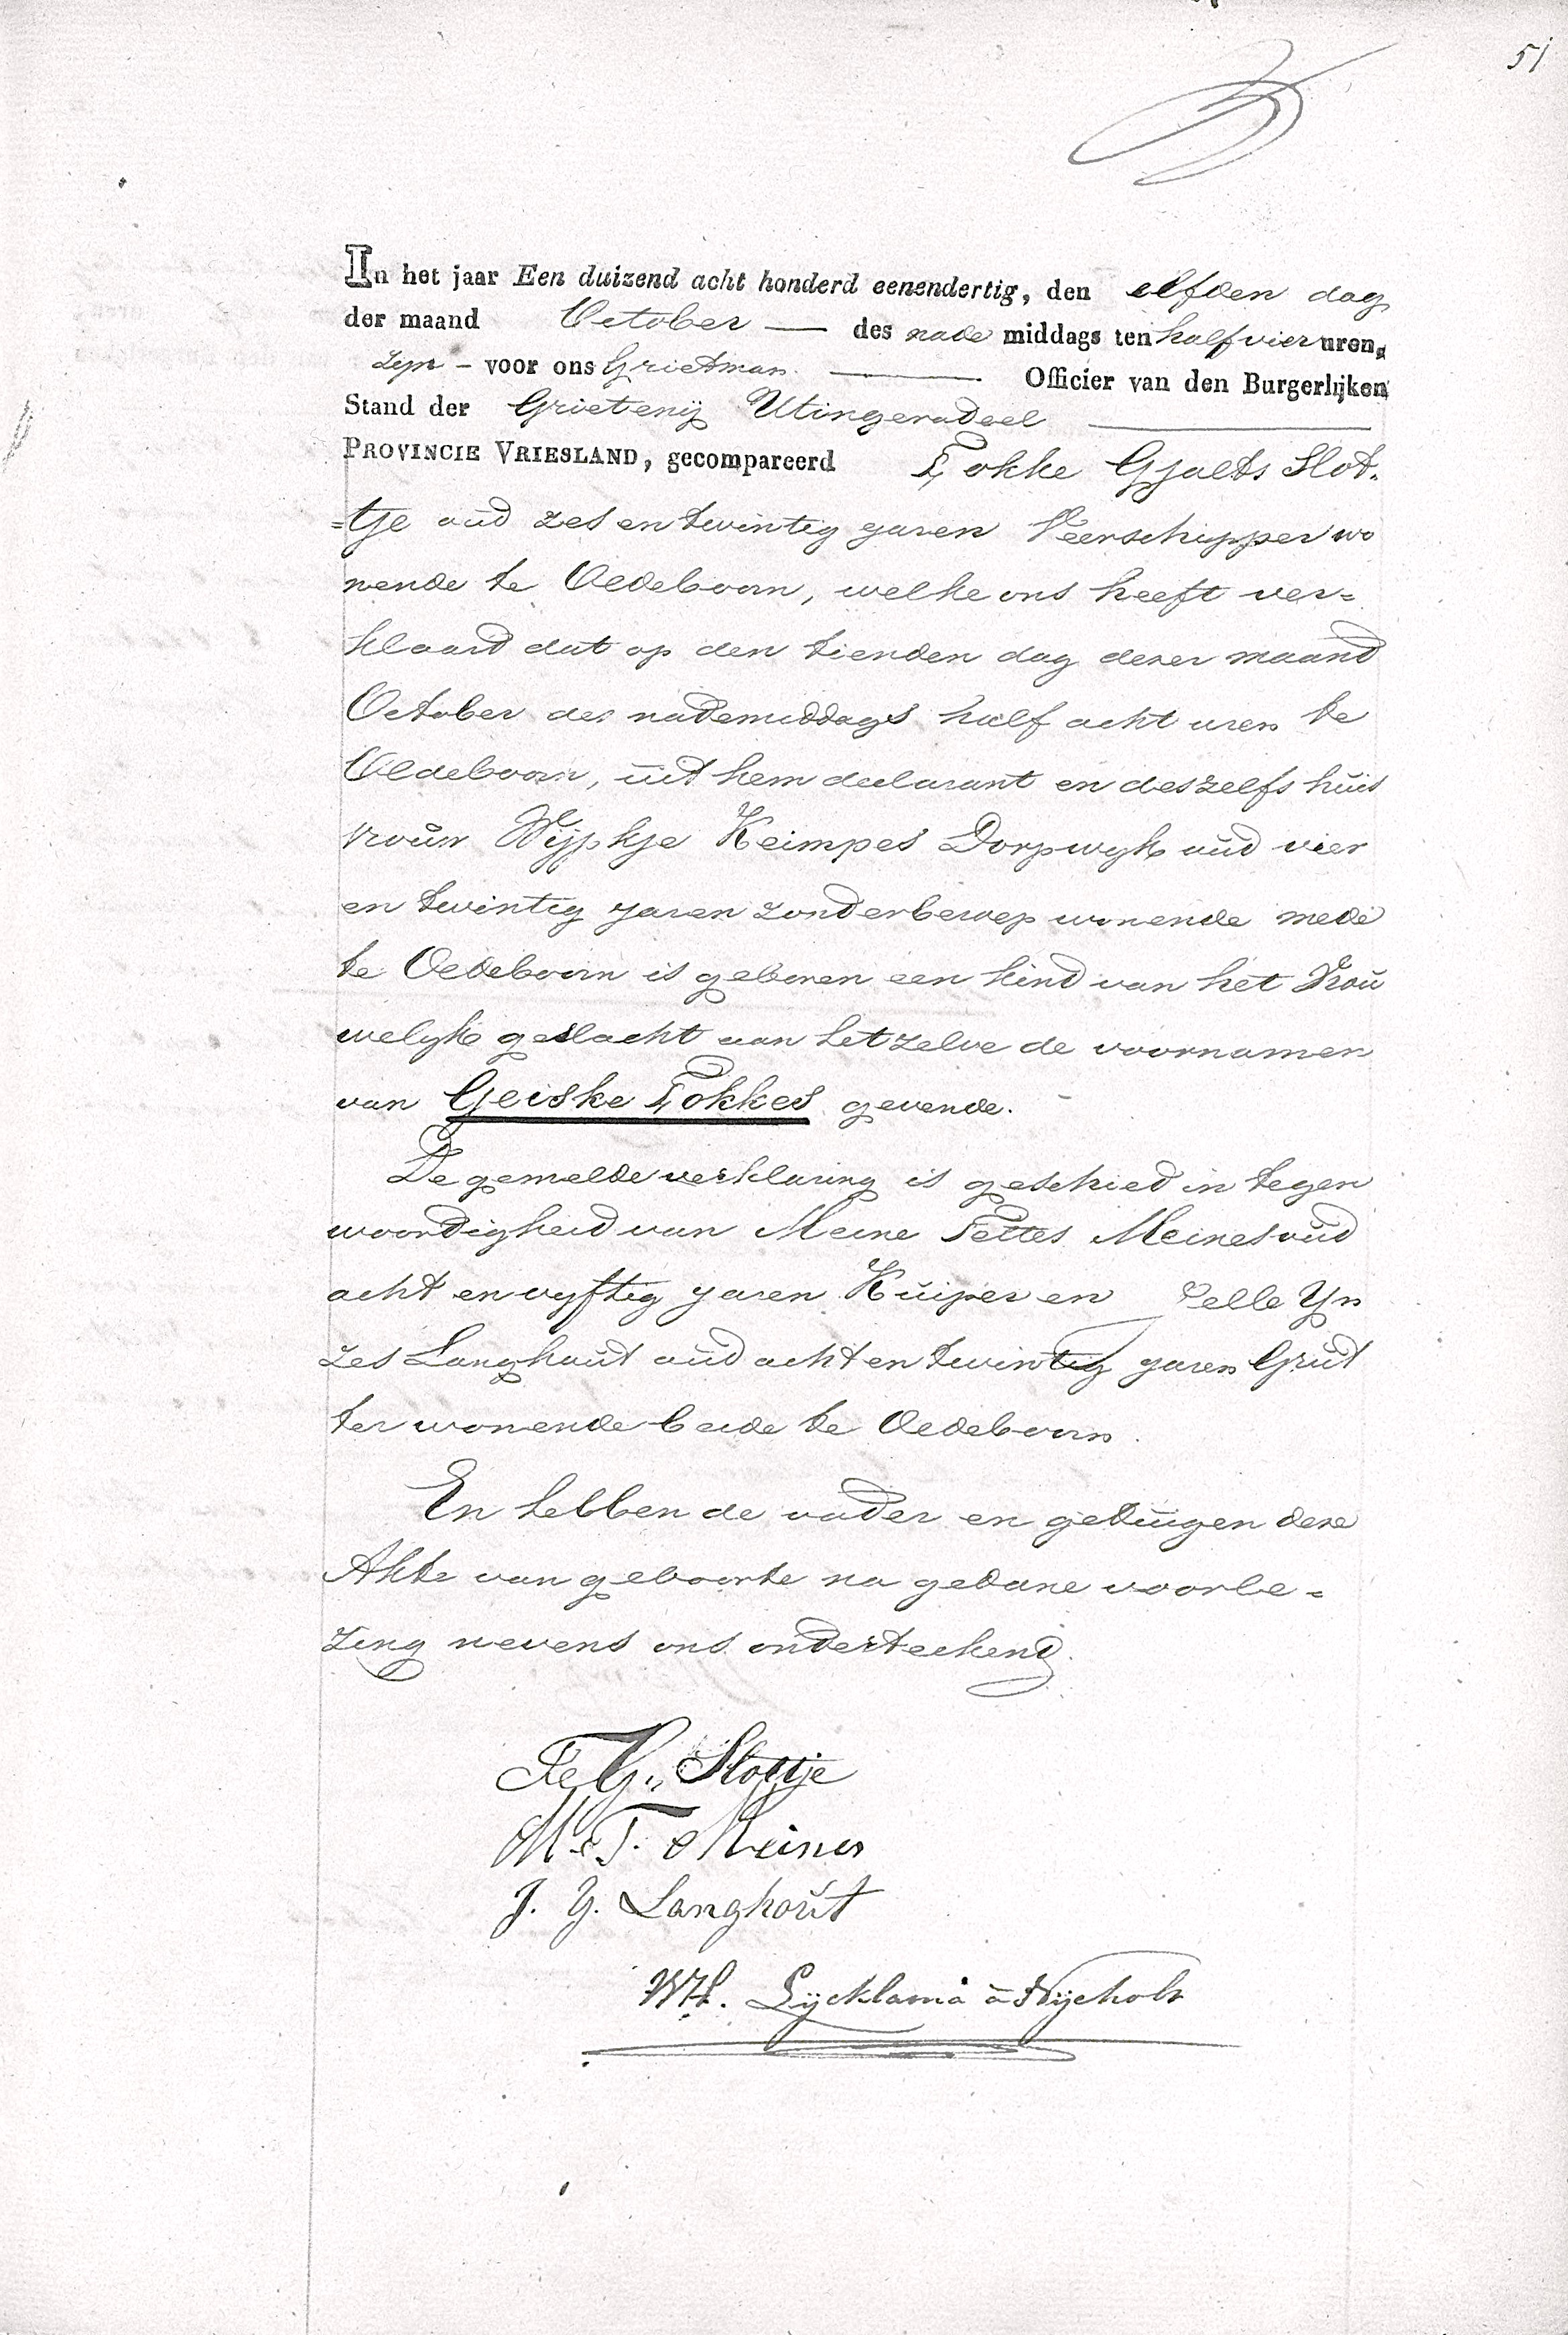 51
In het jaar Een duizend acht honderd eenendertig, den elfden dag
der maand October — des nade middags ten half vier uren,
zyn - voor ons Grietman — Officier van den Burgerlijken
Stand der Grietenij Utingeradeel —
PROVINCIE VRIESLAND, gecompareerd Fokke Gjalts Slot-
=tje oud zes en twintig jaren Veerschipper wo
nende te Oldeboorn, welke ons heeft ver=
klaard dat op den tienden dag dezer maand
October des nademiddags half acht uren te
Oldeboorn, uit hem declarant en deszelfs huis
vrouw Wijpkje Keimpes Dorpwyk oud vier
en twintig jaren zonder beroep wonende mede
te Oldeboorn is geboren een kind van het Vrou
welyk geslacht aan hetzelve de voornamen
van Geiske Fokkes gevende.
De gemelde verklaring is geschied in tegen
woordigheid van Meine Tettes Meines oud
acht en vyftig jaren Kuiper en Jelle Yn
zes Langhout oud acht en twintig jaren Grut
ter wonende beide te Oldeboorn.
En hebben de vader en getuigen deze
Akte van geboorte na gedane voorle=
zing nevens ons onderteekend.
Fe G. Slottje
M. T. Meines
J. Y. Langhout
WH. Lycklama à Nyeholt